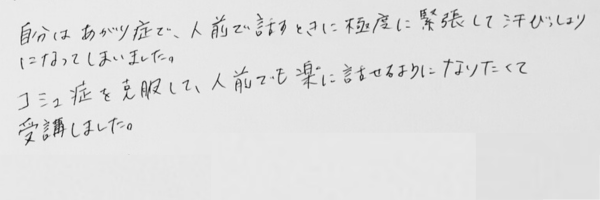 自分はあがり症で、人前で話すときに極度に緊張して汗びっしょり
になってしまいました。
コミュ症を克服して、人前でも楽に話せるようになりたくて
受講しました。